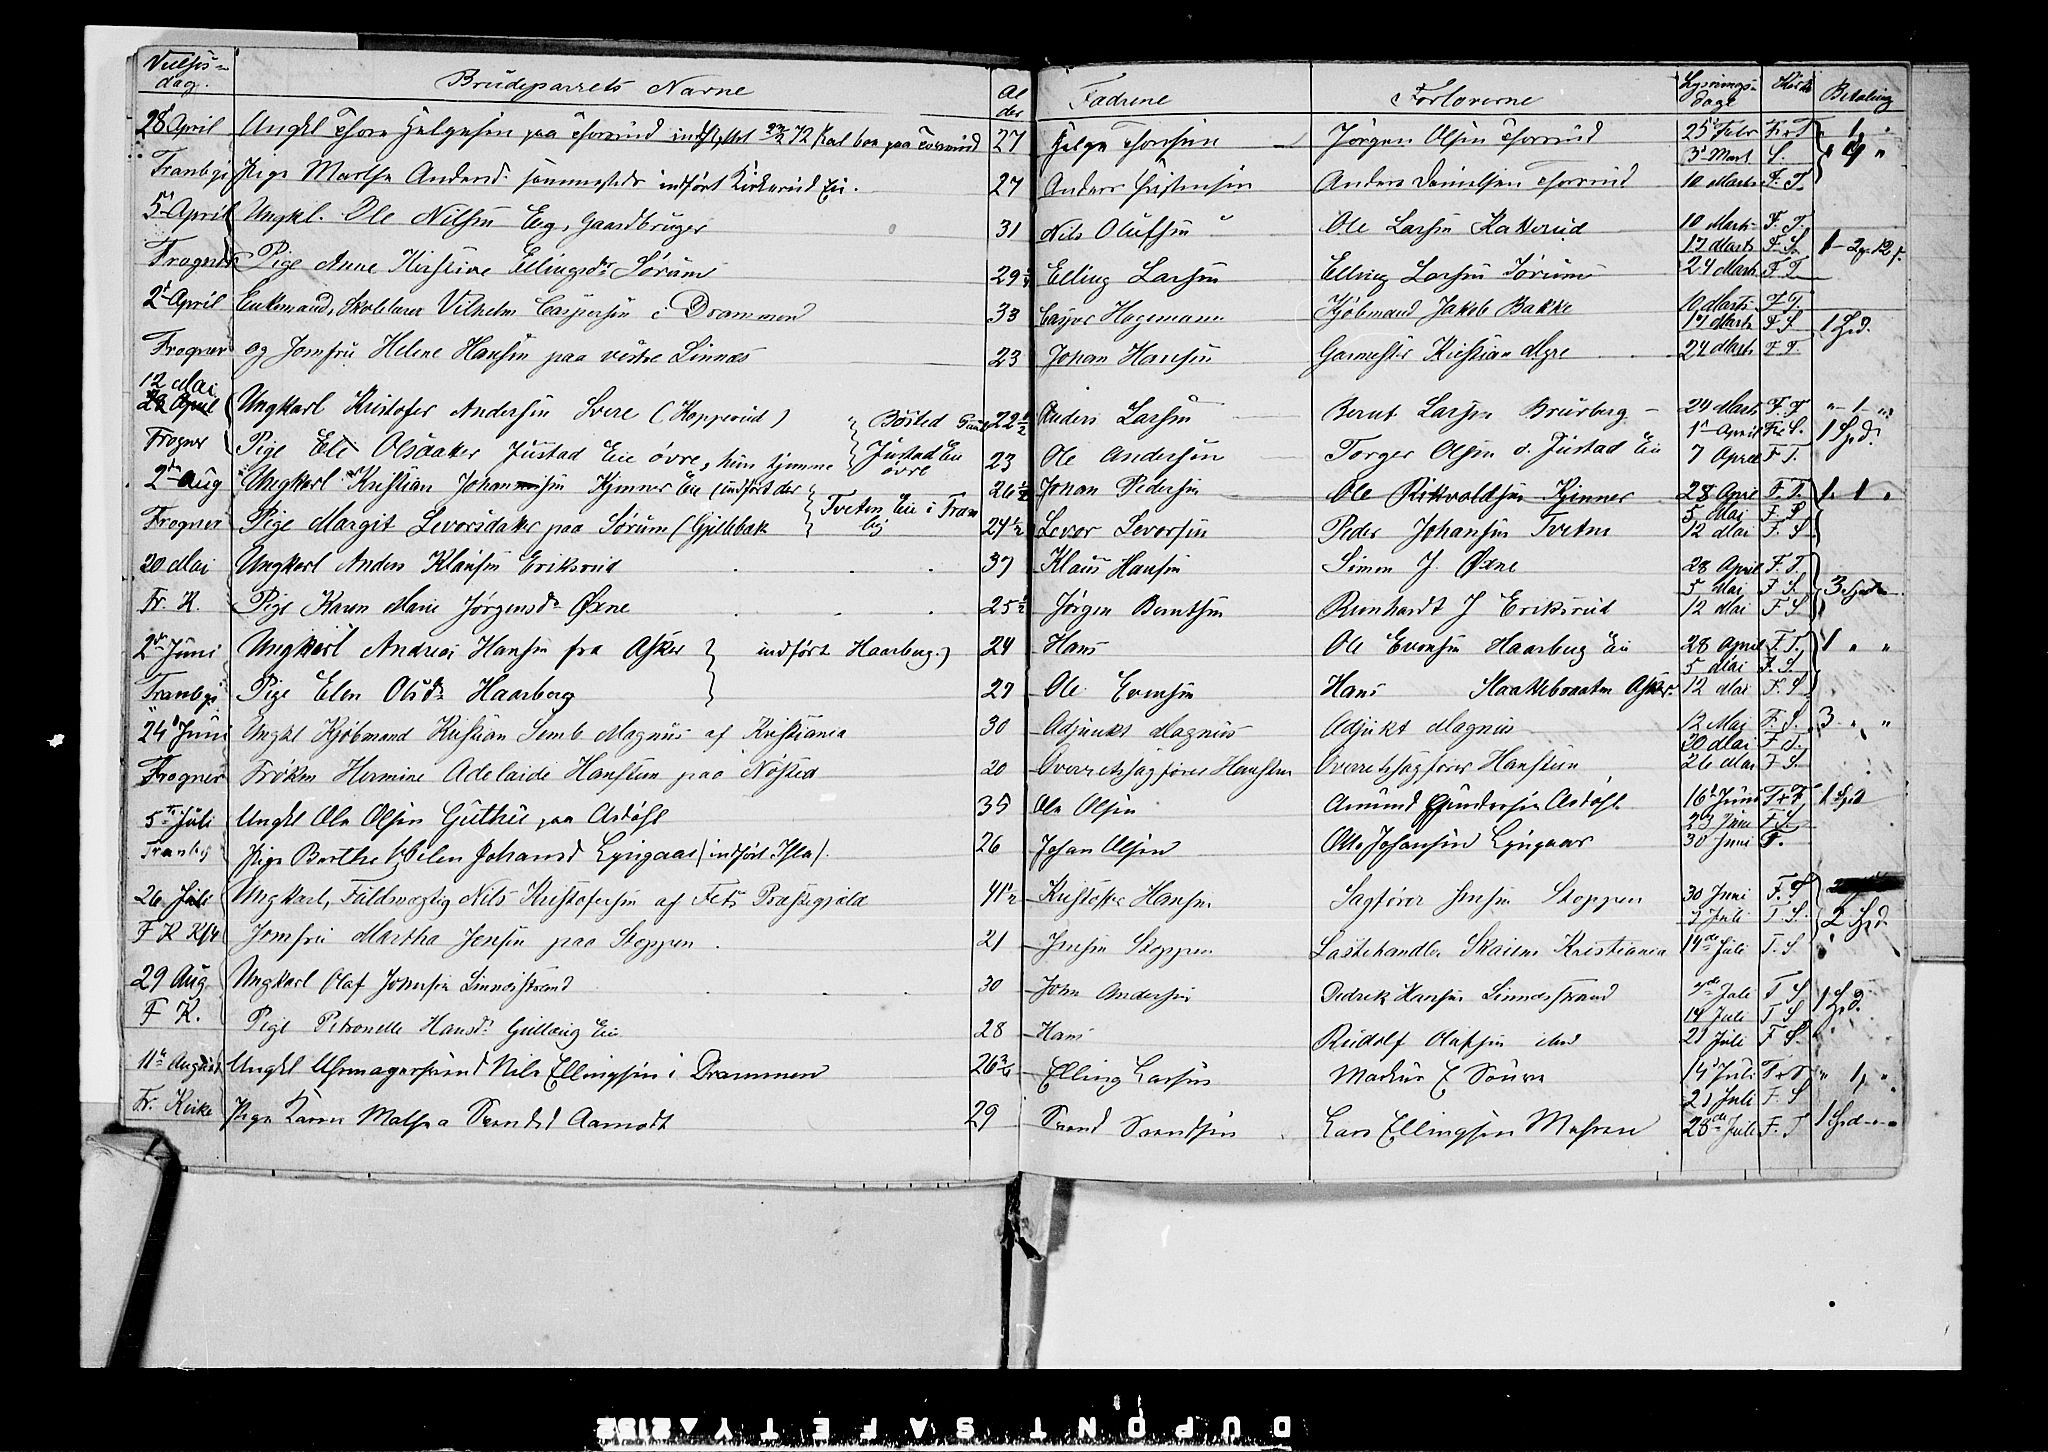 Vielses- dag. Brudeparrets Navne Al der Fædrene Forloverne Lysnings- dage Kirke Betaling
28 April Ungkl Thore Helgesen paa Thorrud 27 Helge Thorsen Jörgen Olsen Thorrud 25 Febr F. T. 1
3 Mart S.
Tranbye Pige Marthe Andersd. sammesteds indført Kirkerud Eie. 27 Anders Anders Danielsen Thorrud 10 Marts F. T.
5 April Ungkl. Ole Nilsen Eeg, Gaardbruger 31 Nils Olufsen Ole Larsen Katterud 10 Marts F. T.
17 Marts F. S.
Frogner Pige Anne Kirstine Ellingsdr Sørum 29 Elling Larsen Elling Larsen Sörum 24 Marts F T
2 April Enkemand, Skolelærer Vilhelm Caspersen i Drammen 33 Casper Hagemann Kjöbmand Jakob Bakke 10 Marts F T.
17 Marts F S. 1 Spd.
Frogner og Jomfru Helene Hansen paa vestre Linnes 23 Johan Hansen Garmester Kristian Myre 24 Marts F T.
12 Mai
Ungkarl Kristofer Andersen Svere (Kopperud) Bosted 22½ Anders Larsen Bernt Larsen Bruberg 24 Marts F. T. 1
1 April F. S. 1 Spd.
Frogner Pige Eli Olsdatter Justad Eie övre, Justad Eie övre 23 Ole Andersen Torger Olsen ö. Justad Eie 7 April F T.
2 Aug Ungkarl Kristian Johannsen Kjinner Eie (indfört der Tveten Eie i Tranby 26½ Johan Pedersen Ole Rikvoldsen Kjinner 28 April F. T. 1
5 Mai F. S
Frogner Pige Margit Levorsdatter paa Sörum (Gjellebæk 24½ Levor Levorsen Peder Johansen Tveten 12 Mai F. S
20 Mai Ungkarl Anders Klausen Eriksrud 37 Klaus Hansen Simen J. Øxne 28 April F. T.
5 Mai F. S. 3 Spd
Fr. K. Pige Karen Marie Jørgensdr Øxne 25½ Jørgen Berntsen Reinhardt J Eriksrud 12 Mai F S
2 Juni Ungkarl Andreas Hansen fra Asker indført Haarberg.) 24 Hans Ole Evensen Haarberg Eie 28 April F. T. 1
5 Mai F. S.
Tranbye Pige Elen Olsdr Haarberg 27 Ole Evensen Hans Asker 12 Mai F. S
24 Juni Ungkl Kjöbmand Kristian Semb Magnus af Kristiania 30 Adjunkt Magnus Adjukt Magnus 12 Mai F. S. 3
20 Mai F T.
Frogner Frøken Hermine Adelaide Hansteen paa Nøsted 20 Overretssagfører Hansteen Overretssagfører Hansteen 26 Mai F S.
5 Juli Ungkl Ole Olsen Guthu paa Asdöhl 35 Ole Olsen Amund Gundersen Asdöhl 16 Juni F. T. 1 Spd
23 Juni F. S
Tranby Pige Berthe Helen Johansd Lyngaas (indført 26 Johan Olsen Otto Johansen Lyngaas 30 Juni T.
26 Juli Ungkarl, Fuldmægtig Nils Kristofersen af Fets Præstegjeld 41½ Kristoffer Hansen Sagfører Jensen Stoppen 30 Juni F. S
7 Juli T S. 2 Spd.
F K Jomfru Martha Jensen paa Stoppen 21 Jensen Stoppen Lastehandler Kristiania 14de Juli T. S
29 Aug. Ungkarl Olaf Johnsen Linnesstrand 30 John Andersen Dedrek Hansen Linnesstrand 7de Juli T S 1 Spd.
14 Juli T S
F K. Pige Petronelle Hansdr Gullaug Eie 28 Hans Rudolf Olafsen ibd 21 Juli F S.
11 August Ungkl Uhrmagersvend Nils Ellingsen i Drammen 26 Elling Larsen Markus E 14 Juli F T 1
21 Juli F S
Fr. Kirke Pige Karen Mathea Svendsd Aamodt 29 Svend Svendsen Lars Ellingsen Mehren 28de Juli F. T 1 Spd
DUPONT SAFETY